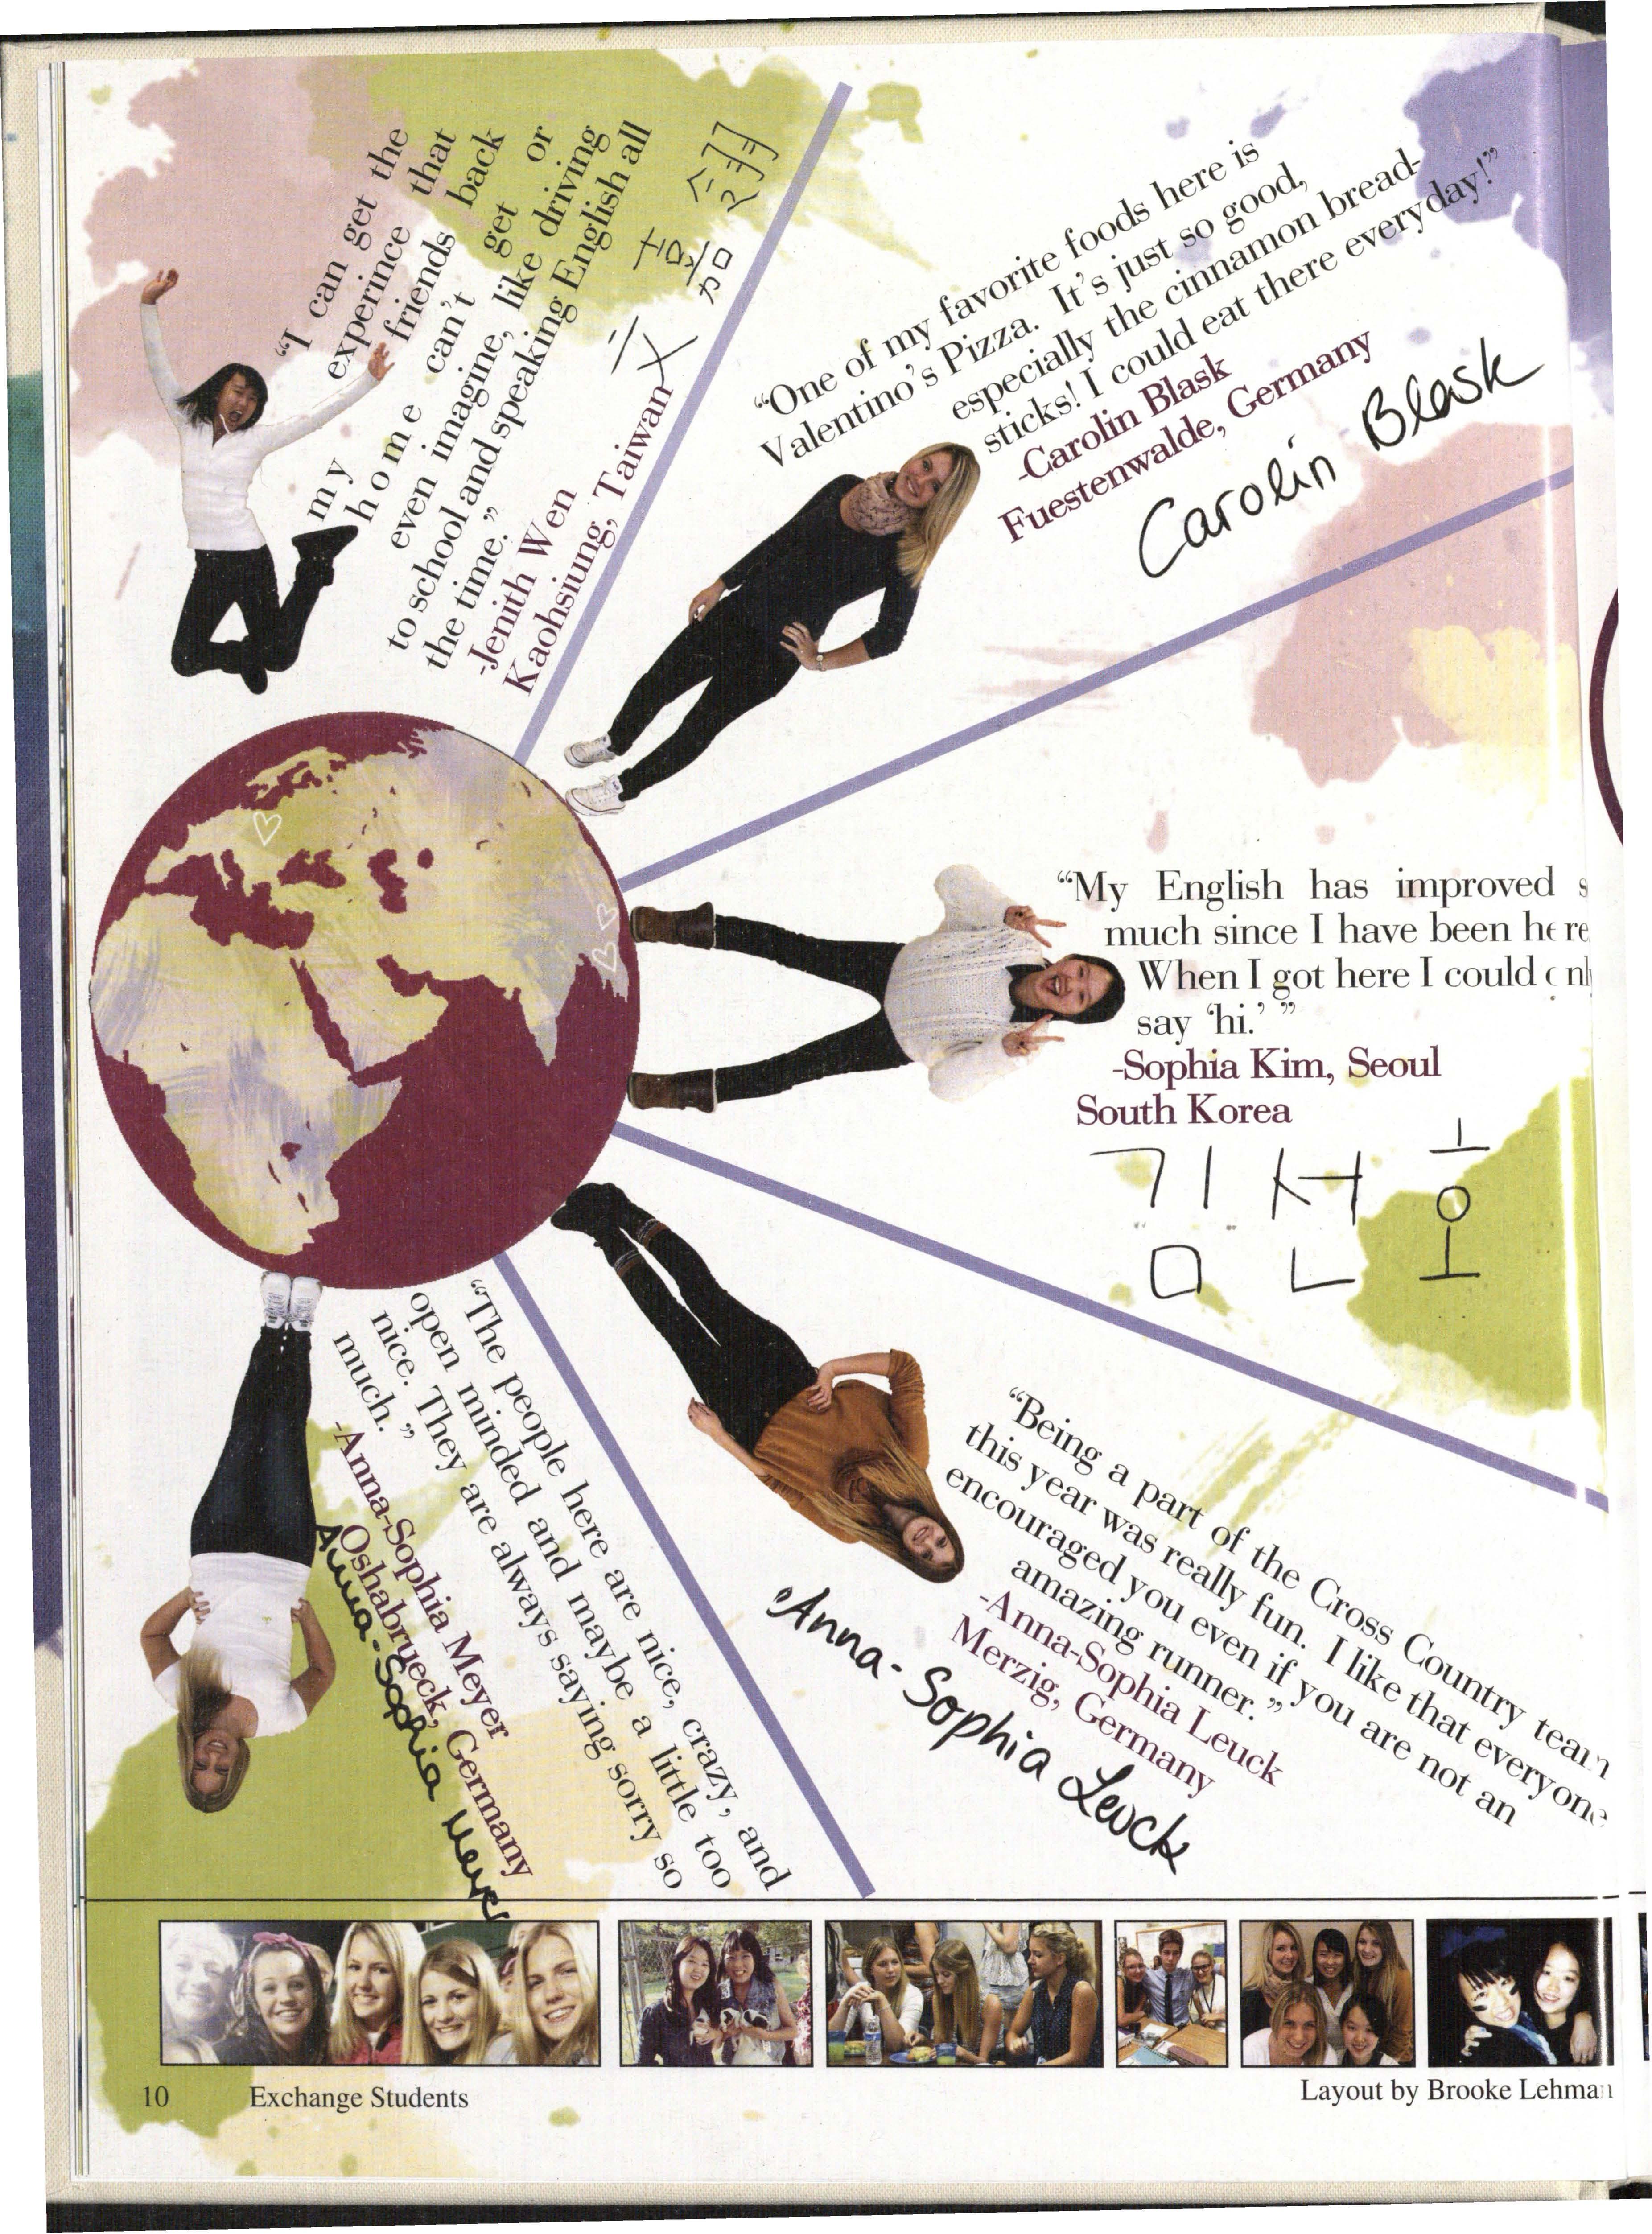 “I can get the
experince that
my friends back
home can’t get or
even imagine, like driving
to school and speaking English all
the time.”
-Jenith Wen
Kaohsiung, Taiwan
文嘉翎
“One of my favorite foods here is
Valentino’s Pizza. It’s just so good,
especially the cinnamon bread-
sticks! I could eat there everyday!”
-Carolin Blask
Fuestenwalde, Germany
Carolin Blask
“My English has improved s
much since I have been here
When I got here I could onl
say ‘hi.’ ”
-Sophia Kim, Seoul
South Korea
김선호
“Being a part of the Cross Country team
this year was really fun. I like that everyone
encouraged you even if you are not an
amazing runner.”
-Anna-Sophia Leuck
Merzig, Germany
Anna-Sophia Leuck
“The people here are nice, crazy, and
open minded and maybe a little too
nice. They are always saying sorry so
much.”
-Anna-Sophia Meyer
Oshabrueck, Germany
Anna-Sophia Meyer
10
Exchange Students
Layout by Brooke Lehman